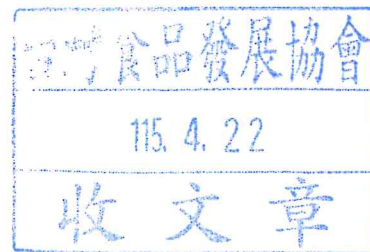 食品發展協會
115. 4. 22
收文章